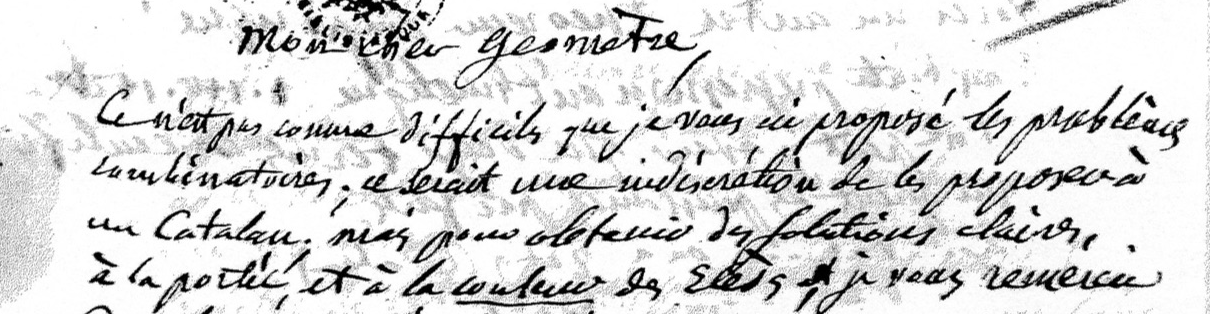 Mon cher Geometre,
Ce n'est pas comme difficiles que je vous ai proposé les problèmes
combinatoires; ce serait une indiscrétion de les proposer à
un Catalan; mais pour obtenir des solutions claires,
à la portée, et à la couleur des je vous remercie